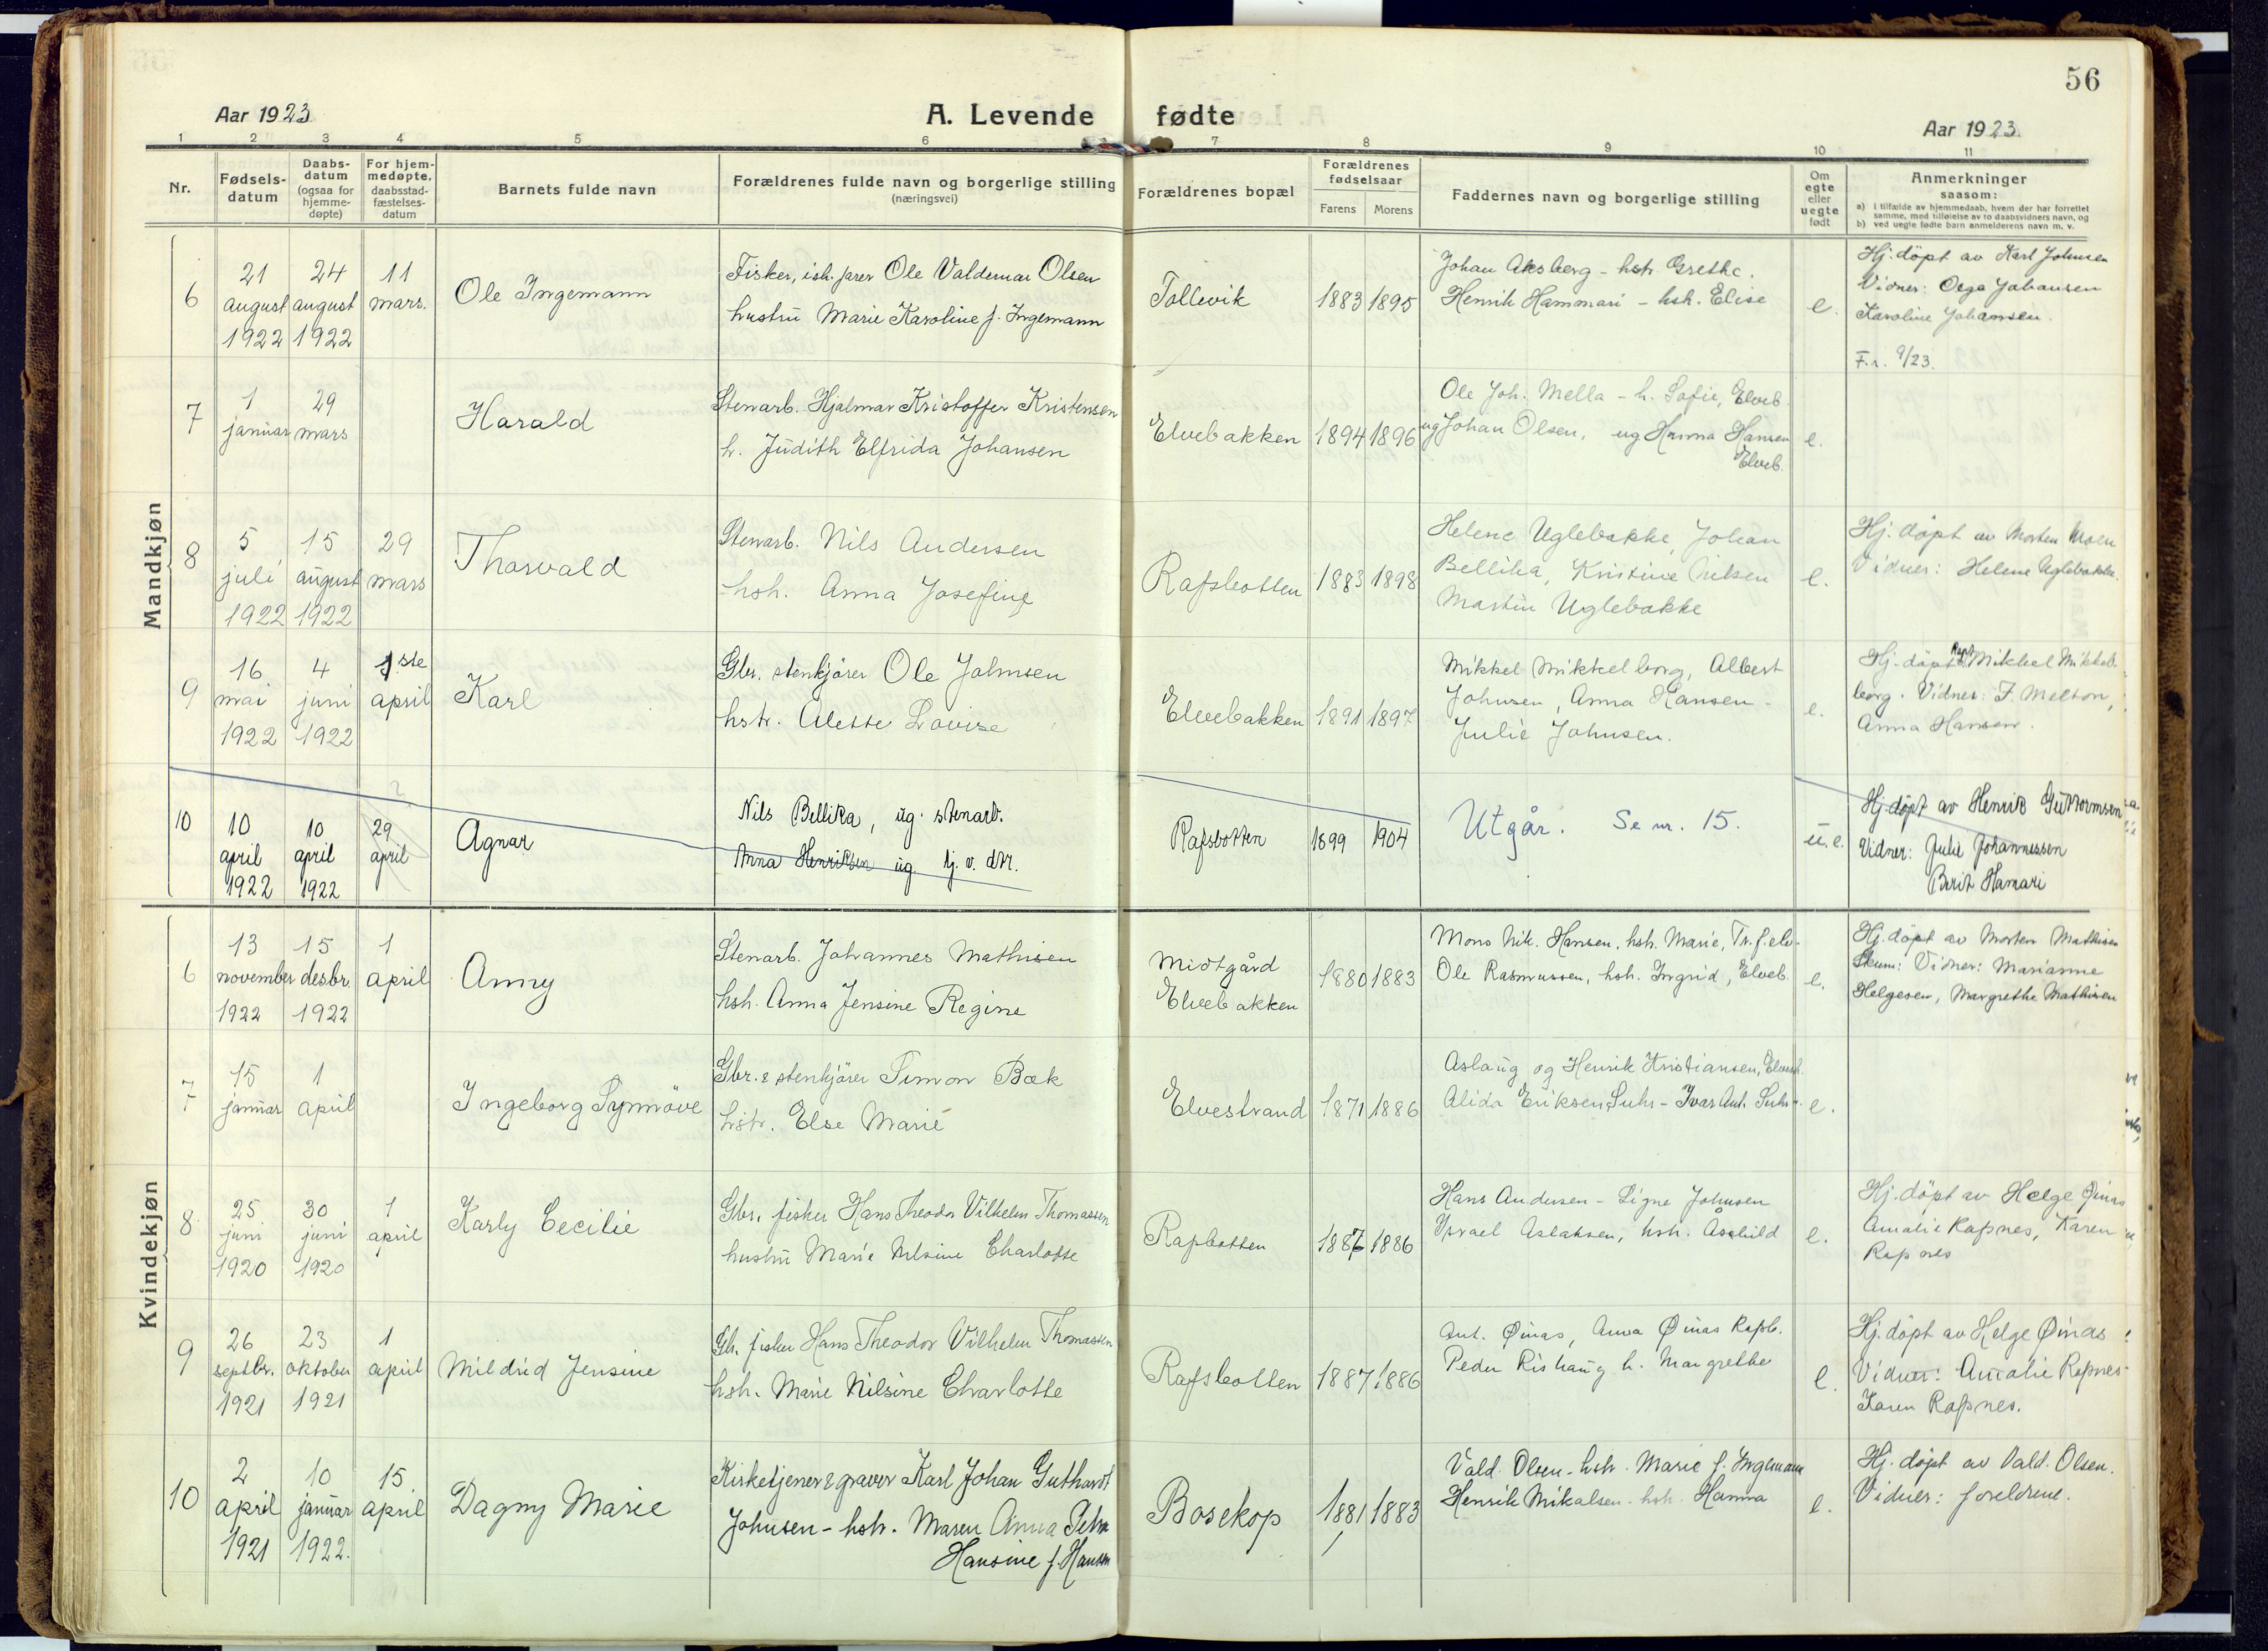 56
Aar 1923
A. Levende fødte
Aar 1923.
1 2 3 4 5 6 7 8 9 10 11
Nr.
Fødsels-
datum
Daabs-
datum
(ogsaa for
hjemme-
døpte)
For hjem-
medøpte,
daabsstad-
fæstelses-
datum
Barnets fulde navn
Forældrenes fulde navn og borgerlige stilling
(næringsvei)
Forældrenes bopæl
Forældrenes
fødselsaar
Farens Morens
Faddernes navn og borgerlige stilling
Om
egte
eller
uegte
født
Anmerkninger
saasom:
a) i tilfælde av hjemmedaab, hvem der har forrettet
samme, med tilføielse av to daabsvidners navn, og
b) ved uegte fødte barn anmelderens navn m. v.
Mandkjøn
6
21
august
1922
24
august
1922
11
mars.
Ole Ingemann
Fisker, Ole Valdemar Olsen
hustru Marie Karoline f. Ingemann
Tollevik
1883 1895
Johan Aksberg - hstr. Grethe.
Henrik Hammari - hsh. Elise
e.
Hj. döpt av Karl Johnsen
Vidner: Johansen
Karoline Johansen.
F.r. 9/23.
7
1
januar
29
mars
Harald
Stenarb. Hjalmar Kristoffer Kristensen
h. Judith Elfrida Johansen
Elvebakken
1894 1896
Ole Joh. Mella - h. Sofie, Elveb.
ug Johan Olsen, ug Hanna Hansen
Elveb.
e.
8
5
juli
1922
15
august
1922
29
mars
Thorvald
Stenarb. Nils Andersen
hsh. Anna Josefine
Rafsbotten
1883 1898
Helene Uglebakke, Johan
Bellika, Kristine Nilsen
Martin Uglebakke
e.
Hj. döpt av Morten Moen
Vidner: Helene Uglebakke.
9
16
mai
1922
4
juni
1922
1ste
april
Karl
Gbr. stenkjörer Ole Johnsen
hstr. Alette Lovise
Elvebakken
1891 1897
Mikkel Mikkelborg, Albert
Johnsen, Anna Hansen -
Julie Johnsen.
e.
Hj. döpt Mikkel Mikkel-
borg. Vidner: F. Melton,
Anna Hansen.
10
10
april
1922
10
april
1922
?
29
april
Agnar
Nils Bellika, ug. stenarb.
Anna Henriksen ug. tj. v. dtr.
Rafsbotten
1899 1904
Utgår. Se nr. 15.
u.e.
Hj. döpt av Henrik Guttormsen
Vidner: Julie Johannessen
Berit Hamari
Kvindekjøn
6
13
november
1922
15
desbr.
1922
1
april
Anny
Stenarb. Johannes Mathisen
hsh. Anna Jensine Regine
Midtgård
Elvebakken
1880 1883
Mons Nik. Hansen, hsh. Marie, Tr.f.elv.
Ole Rasmussen, hsh. Ingrid, Elveb.
e.
Hj. döpt av Morten Mathisen
Skum: Vidner: Marianne
Helgesen, Margrethe Mathisen
7
15
januar
1
april
Ingeborg Synnöve
Gbr. & stenkjörer Simon Bæk
hstr. Else Marie
Elvestrand
1871 1886
Aslaug og Henrik Kristiansen, Elvestr.
Alida Eriksen Suhr - Ivar Ant. Suhr
e.
8
25
juni
1920
30
juni
1920
1
april
Karly Cecilie
Gbr. fisker Hans Theodor Vilhelm Thomassen
hustru Marie Nilsine Charlotte
Rafsbotten
1887 1886
Hans Andersen - Signe Johnsen
Israel Aslaksen, hsh. Aashild
e.
Hj. döpt av Helge Øinas
Amalie Rafsnes, Karen
Rafsnes
9
26
septbr.
1921
23
oktober
1921
1
april
Mildrid Jensine
Gbr. fisker Hans Theodor Vilhelm Thomassen
hsh. Marie Nilsine Charlotte
Rafsbotten
1887 1886
Ant. Øinas, Anna Øinas Rafsb.
Peder Rishaug h. Margrethe
e.
Hj. döpt av Helge Øinas
Vidner: Amalie Rafsnes
Karen Rafsnes.
10
2
april
1921
10
januar
1922.
15
april
Dagny Marie
Kirketjener & graver Karl Johan Guthardt
Johnsen - hstr. Maren Anna Petra
Hansine f. Hansen
Bosekop
1881 1883
Vald. Olsen - hstr. Marie f. Ingemann
Henrik Mikalsen - hsh. Hanna
e.
Hj. döpt av Vald. Olsen.
Vidner: foreldrene.